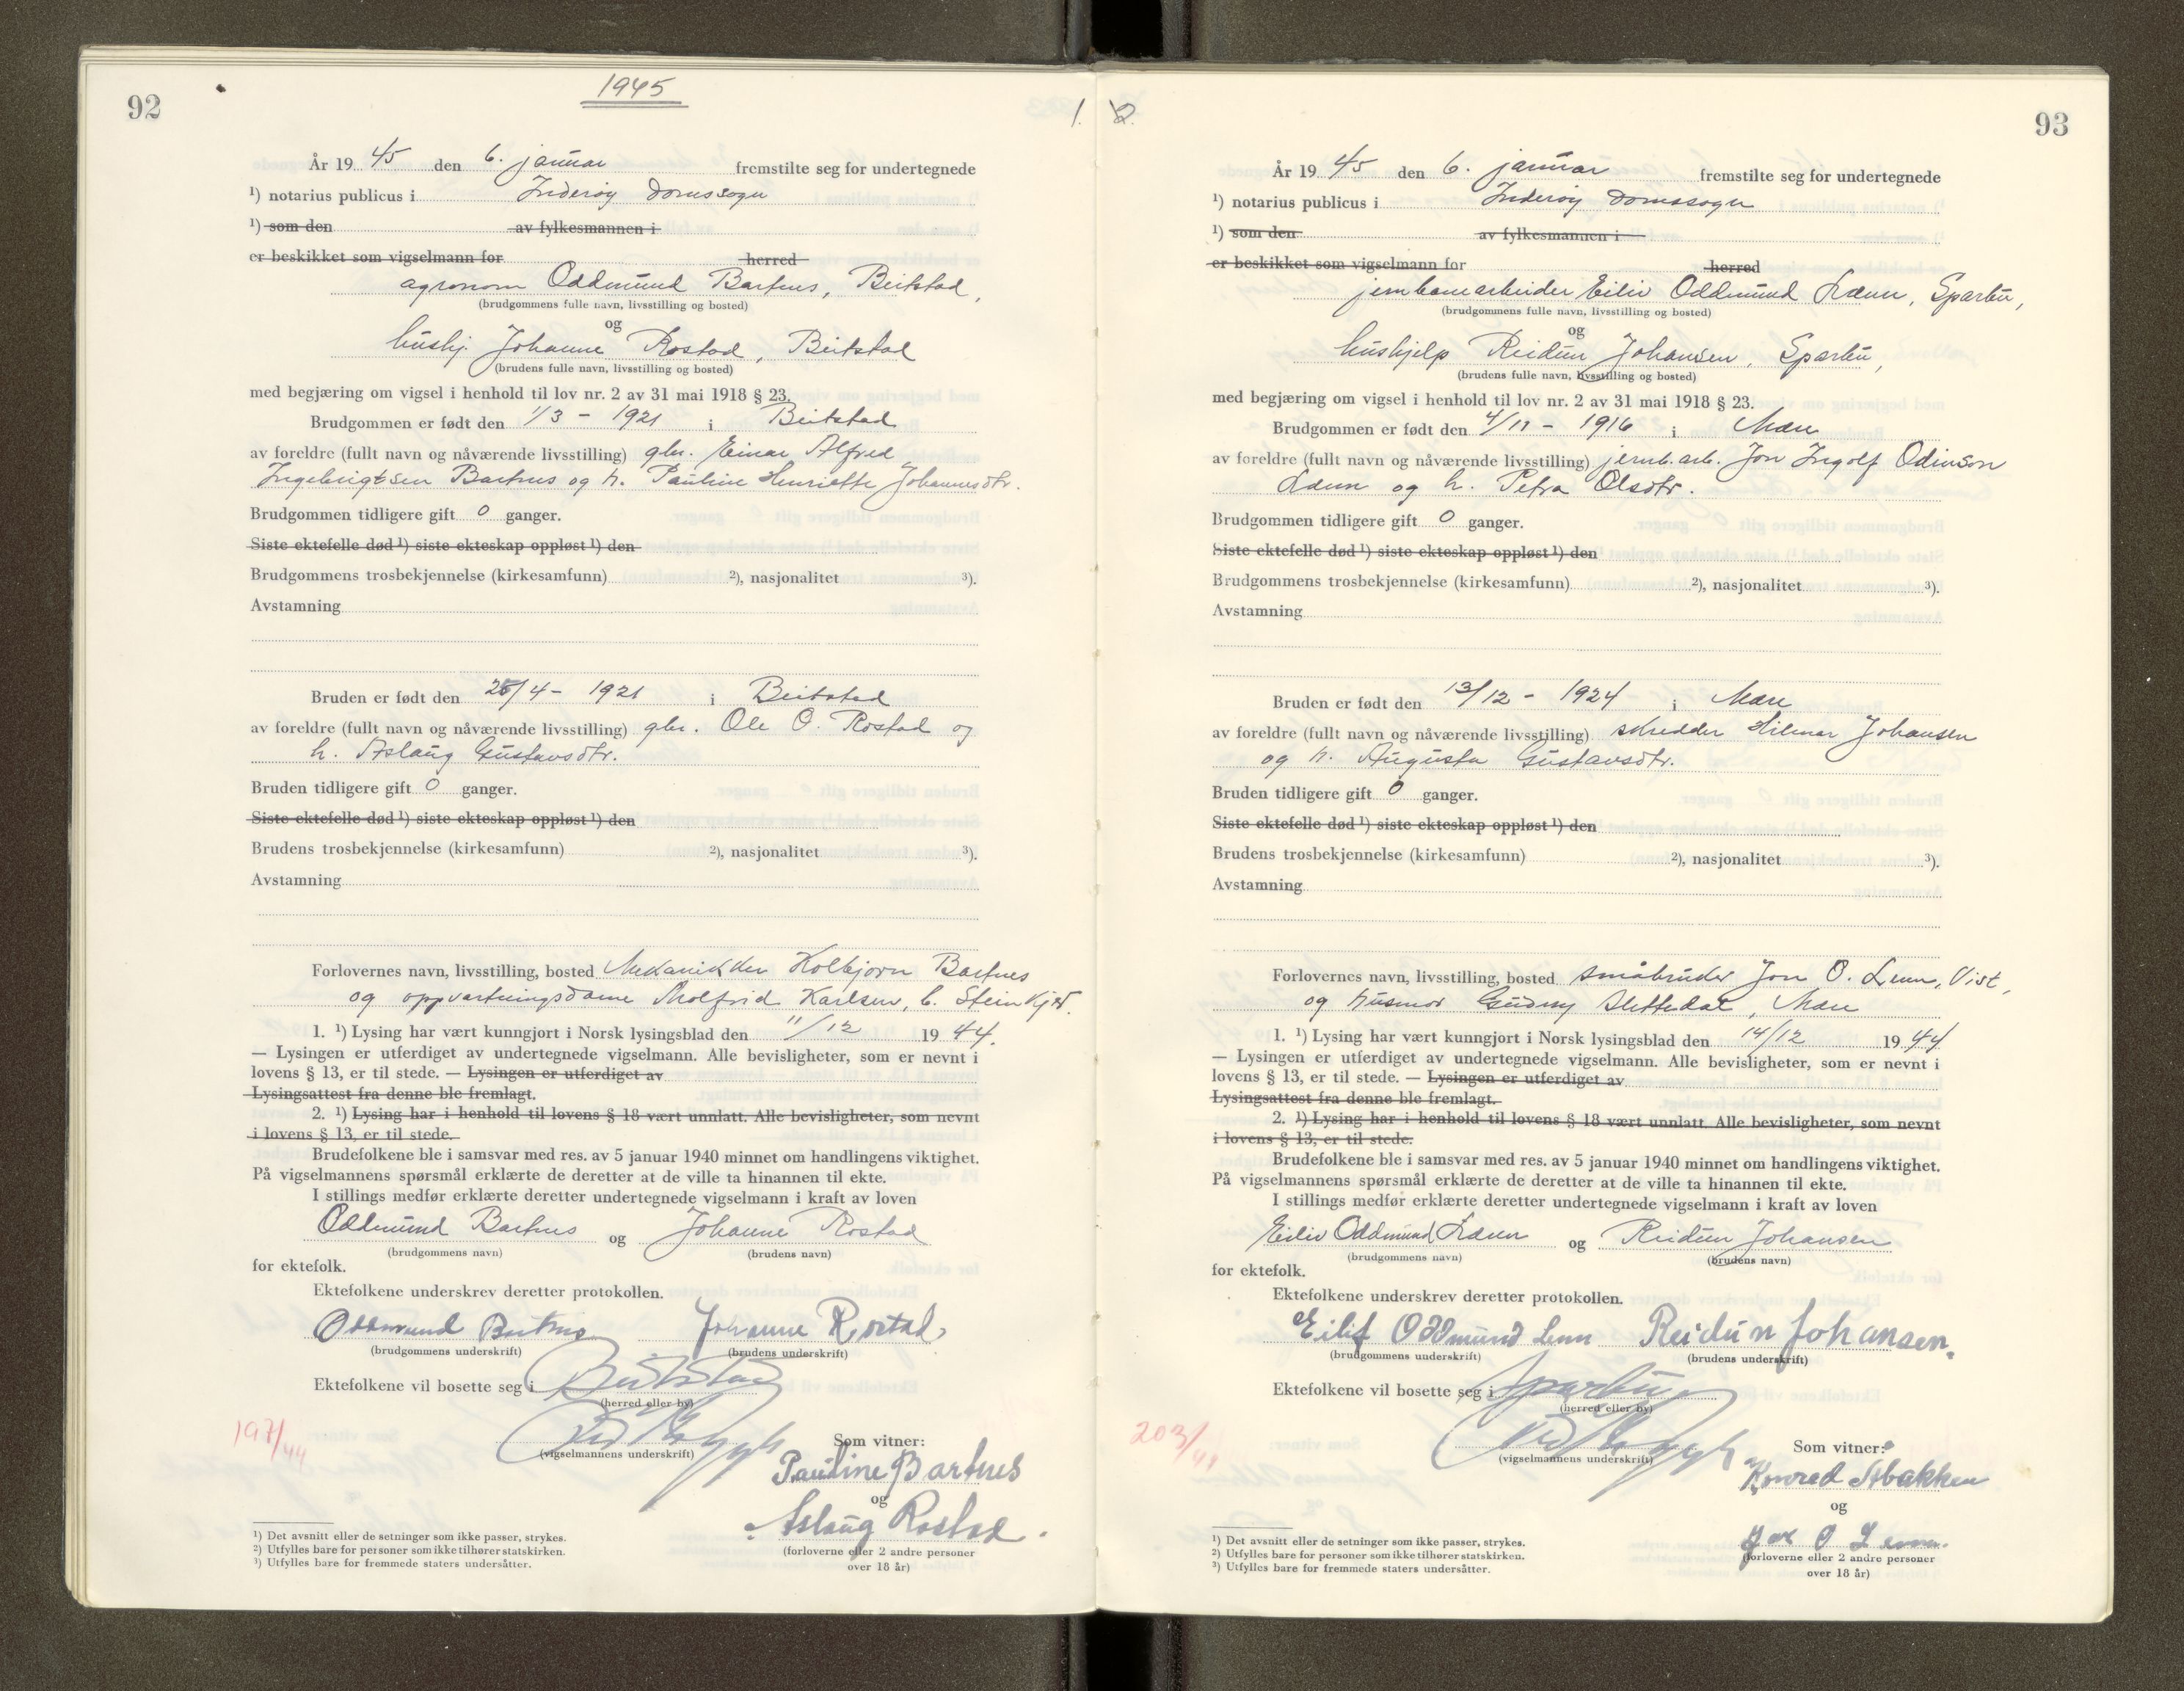 92
1945
1.
År 19 45 den 6. januar fremstilte seg for undertegnede
¹) notarius publicus i Inderøy domssogn
¹) som den av fylkesmannen i
er beskikket som vigselmann for herred
agronom Oddmund Bartnes, Beitstad,
(brudgommens fulle navn, livsstilling og bosted)
og
hushj. Johanne Rostad, Beitstad
(brudens fulle navn, livsstilling og bosted)
med begjæring om vigsel i henhold til lov nr. 2 av 31 mai 1918 § 23.
Brudgommen er født den 1/3 - 1921 i Beitstad
av foreldre (fullt navn og nåværende livsstilling) gbr. Einar Alfred
Ingebrigtsen Bartnes og h. Pauline Henriette Johannesdtr.
Brudgommen tidligere gift 0 ganger.
Siste ektefelle død ¹) siste ekteskap oppløst ¹) den
Brudgommens trosbekjennelse (kirkesamfunn) ²), nasjonalitet ³).
Avstamning
Bruden er født den 25/4 - 1921 i Beitstad
av foreldre (fullt navn og nåværende livsstilling) gbr. Ole O. Rostad og
h. Aslaug Gustavsdtr.
Bruden tidligere gift 0 ganger.
Siste ektefelle død ¹) siste ekteskap oppløst ¹) den
Brudens trosbekjennelse (kirkesamfunn) ²), nasjonalitet ³).
Avstamning
Forlovernes navn, livsstilling, bosted Mekanikker Kolbjørn Bartnes
og oppvartningsdame Molfrid Karlsen, b. Steinkjer.
1. ¹) Lysing har vært kunngjort i Norsk lysingsblad den 11/12 19 44.
— Lysingen er utferdiget av undertegnede vigselmann. Alle bevisligheter, som er nevnt i
lovens § 13, er til stede. — Lysingen er utferdiget av
Lysingsattest fra denne ble fremlagt.
2. ¹) Lysing har i henhold til lovens § 18 vært unnlatt. Alle bevisligheter, som nevnt
i lovens § 13, er til stede.
Brudefolkene ble i samsvar med res. av 5 januar 1940 minnet om handlingens viktighet.
På vigselmannens spørsmål erklærte de deretter at de ville ta hinannen til ekte.
I stillings medfør erklærte deretter undertegnede vigselmann i kraft av loven
Oddmund Bartnes og Johanne Rostad
(brudgommens navn) (brudens navn)
for ektefolk.
Ektefolkene underskrev deretter protokollen.
Oddmund Bartnes Johanne Rostad,
(brudgommens underskrift) (brudens underskrift)
Ektefolkene vil bosette seg i Beitstad
(herred eller by)
197/44
(vigselmannens underskrift)
Som vitner:
Pauline Bartnes
og
Aslaug Rostad.
(forloverne eller 2 andre personer
over 18 år)
¹) Det avsnitt eller de setninger som ikke passer, strykes.
²) Utfylles bare for personer som ikke tilhører statskirken.
³) Utfylles bare for fremmede staters undersåtter.
93
2.
År 19 45 den 6. januar fremstilte seg for undertegnede
¹) notarius publicus i Inderøy domssogn
¹) som den av fylkesmannen i
er beskikket som vigselmann for herred
jernbanearbeider Eiliv Oddmund Lænn, Sparbu,
(brudgommens fulle navn, livsstilling og bosted)
og
hushjelp Reidun Johansen, Sparbu,
(brudens fulle navn, livsstilling og bosted)
med begjæring om vigsel i henhold til lov nr. 2 av 31 mai 1918 § 23.
Brudgommen er født den 4/11 - 1916 i Mære
av foreldre (fullt navn og nåværende livsstilling) jernb.arb. Jon Ingolf Odinson
Lænn og h. Petra Olsdtr.
Brudgommen tidligere gift 0 ganger.
Siste ektefelle død ¹) siste ekteskap oppløst ¹) den
Brudgommens trosbekjennelse (kirkesamfunn) ²), nasjonalitet ³).
Avstamning
Bruden er født den 13/12 - 1924 i Mære
av foreldre (fullt navn og nåværende livsstilling) skredder Hilmar Johansen
og h. Augusta Gustavsdtr.
Bruden tidligere gift 0 ganger.
Siste ektefelle død ¹) siste ekteskap oppløst ¹) den
Brudens trosbekjennelse (kirkesamfunn) ²), nasjonalitet ³).
Avstamning
Forlovernes navn, livsstilling, bosted småbruker Jon O. Lenn, Vist,
og husmor Gudny Slettedal, Mære
1. ¹) Lysing har vært kunngjort i Norsk lysingsblad den 14/12 19 44
— Lysingen er utferdiget av undertegnede vigselmann. Alle bevisligheter, som er nevnt i
lovens § 13, er til stede. — Lysingen er utferdiget av
Lysingsattest fra denne ble fremlagt.
2. ¹) Lysing har i henhold til lovens § 18 vært unnlatt. Alle bevisligheter, som nevnt
i lovens § 13, er til stede.
Brudefolkene ble i samsvar med res. av 5 januar 1940 minnet om handlingens viktighet.
På vigselmannens spørsmål erklærte de deretter at de ville ta hinannen til ekte.
I stillings medfør erklærte deretter undertegnede vigselmann i kraft av loven
Eiliv Oddmund Lænn og Reidun Johansen
(brudgommens navn) (brudens navn)
for ektefolk.
Ektefolkene underskrev deretter protokollen.
Eilif Oddmund Lenn Reidun Johansen.
(brudgommens underskrift) (brudens underskrift)
Ektefolkene vil bosette seg i Sparbu
(herred eller by)
203/44
(vigselmannens underskrift)
Som vitner:
Konrad Stbakken
og
Jon O Lenn.
(forloverne eller 2 andre personer
over 18 år)
¹) Det avsnitt eller de setninger som ikke passer, strykes.
²) Utfylles bare for personer som ikke tilhører statskirken.
³) Utfylles bare for fremmede staters undersåtter.